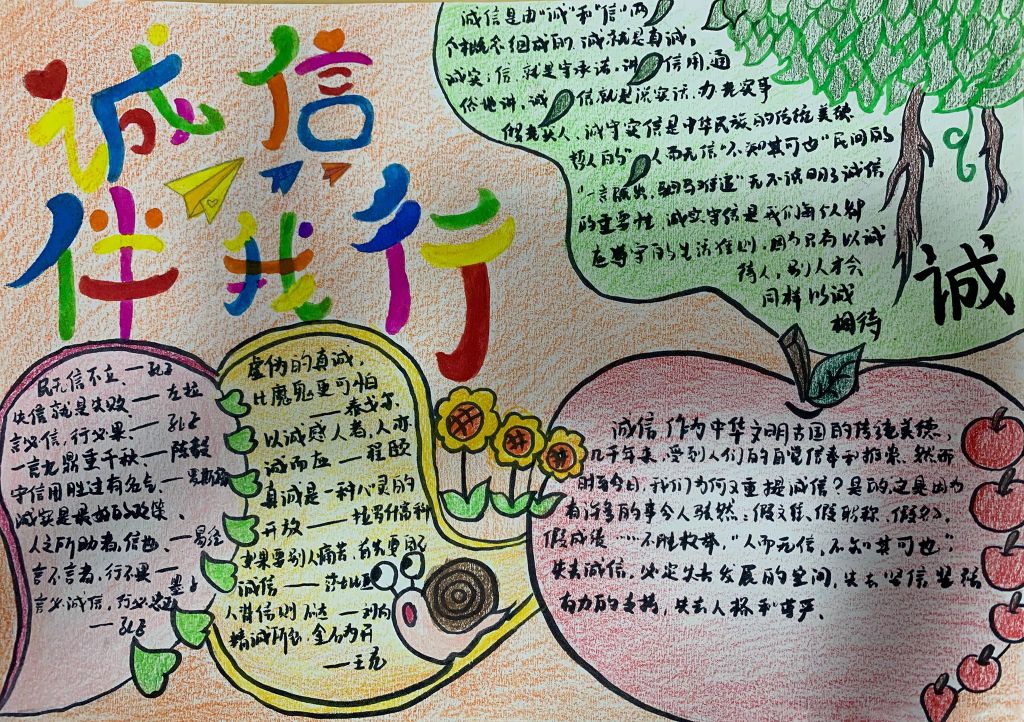 诚信
伴我行
诚信是由"诚"和"信"两
个概念组成的 诚就是真诚,
诚实;信,就是守承诺,讲信用,通
俗地讲,诚信就是说实话,办老实事
做老实人,诚守实信是中华民族的传统美德
哲人的"人而无信"不知其可也"民间的
"一言既出,驷马难追"无不说明了诚信
的重要性 诚实守信是我们每个人都
应尊守的生活准则,因为只有以诚
待人,别人才会
同样以诚
相待
诚
民无信不立、—孔子
失信就是失败、—左拉
言必信,行必果、—孔子
一言九鼎重千秋、—陈毅
守信用胜过有名气、—
诚实是最好的政策、
人之所助者,信也、—易经
言不言者,行不果—墨子
言必诚信,行必
—孔子
虚伪的真诚,
比魔鬼更可怕
—泰戈尔
以诚感人者,人亦
诚而应—程颐
真诚是一种心灵的
开放—拉罗什富科
如果要别人痛苦,首先要
诚信—莎士比
人背信则 不达—刘向
精诚所至,金石为开
—王充
诚信作为中华文明古国的传统美德,
几千年来,受到人们的自觉信奉和推崇、然而
时至今日,我们为何又重提诚信?是的,这是因为
有许多的事令人骇然:假文凭、假职称、假分,
假成绩……不胜枚举,"人而无信,不知"其可也",
失去诚信,必定失去发展的空间,失去坚信
有力的支持,失去人格和尊严。